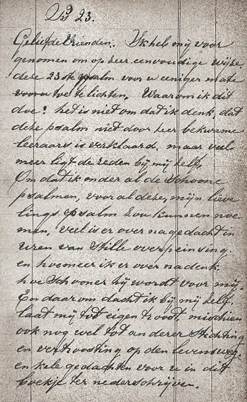 Ps 23.
Geliefde Vrienden. Ik heb mij voor
genomen om op zeer eenvoudige wijze,
deze 23ste psalm voor u eeniger mate
toe te lichten, Waarom ik dit
doe? het is niet omdat ik denk, dat
deze psalm niet door zeer bekwame
leeraars is verklaard, maar veel
meer ligt de reden bij mij zelf.
Omdat ik onder al de schoone
psalmen, voor al deze, mijn lieve
lings psalm zou kunnen noe
men, veel is er over nagedacht in
uren van stille overpeinsing.
en hoe meer ik er over nadenk
hoe schooner hij wordt voor mij.
En daarom dacht ik bij mij zelf,
laat mij tot eigen troost, misschien
ook nog wel tot anderer stichting
en vertroosting op den levensweg.
en kele gedachten voor u in dit
boekje ter neder schrijven.